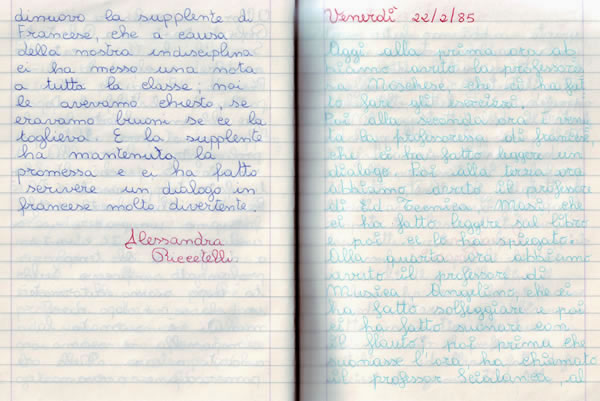 dinuovo la supplente di
Francese, che a causa
della nostra indisciplina
ci ha messo una nota
a tutta la classe; noi
le avevamo chiesto, se
eravamo buoni se ce la
toglieva. E la supplente
ha mantenuto la
promessa e ci ha fatto
scrivere un dialogo in
francese molto divertente.
Alessandra
Puccetelli
Venerdì 22/2/85
Oggi alla prima ora ab
biamo avuto la professores
sa Moschese, che ci ha fat
to fare gli esercizi.
Poi alla seconda ora è venu
ta la professoressa di francese,
che ci ha fatto leggere un
dialogo. Poi alla terza ora
abbiamo avuto il professore
di Ed. Tecnica, Masi, che
ci ha fatto leggere sul libro
e poi ce lo ha spiegato.
Alla quarta ora abbiamo
avuto il professore di
Musica, Angelino, che ci
ha fatto solfeggiare e poi
ci ha fatto suonare con
il flauto; poi prima che
suonasse l'ora ha chiamato
il professor Scialanca, al